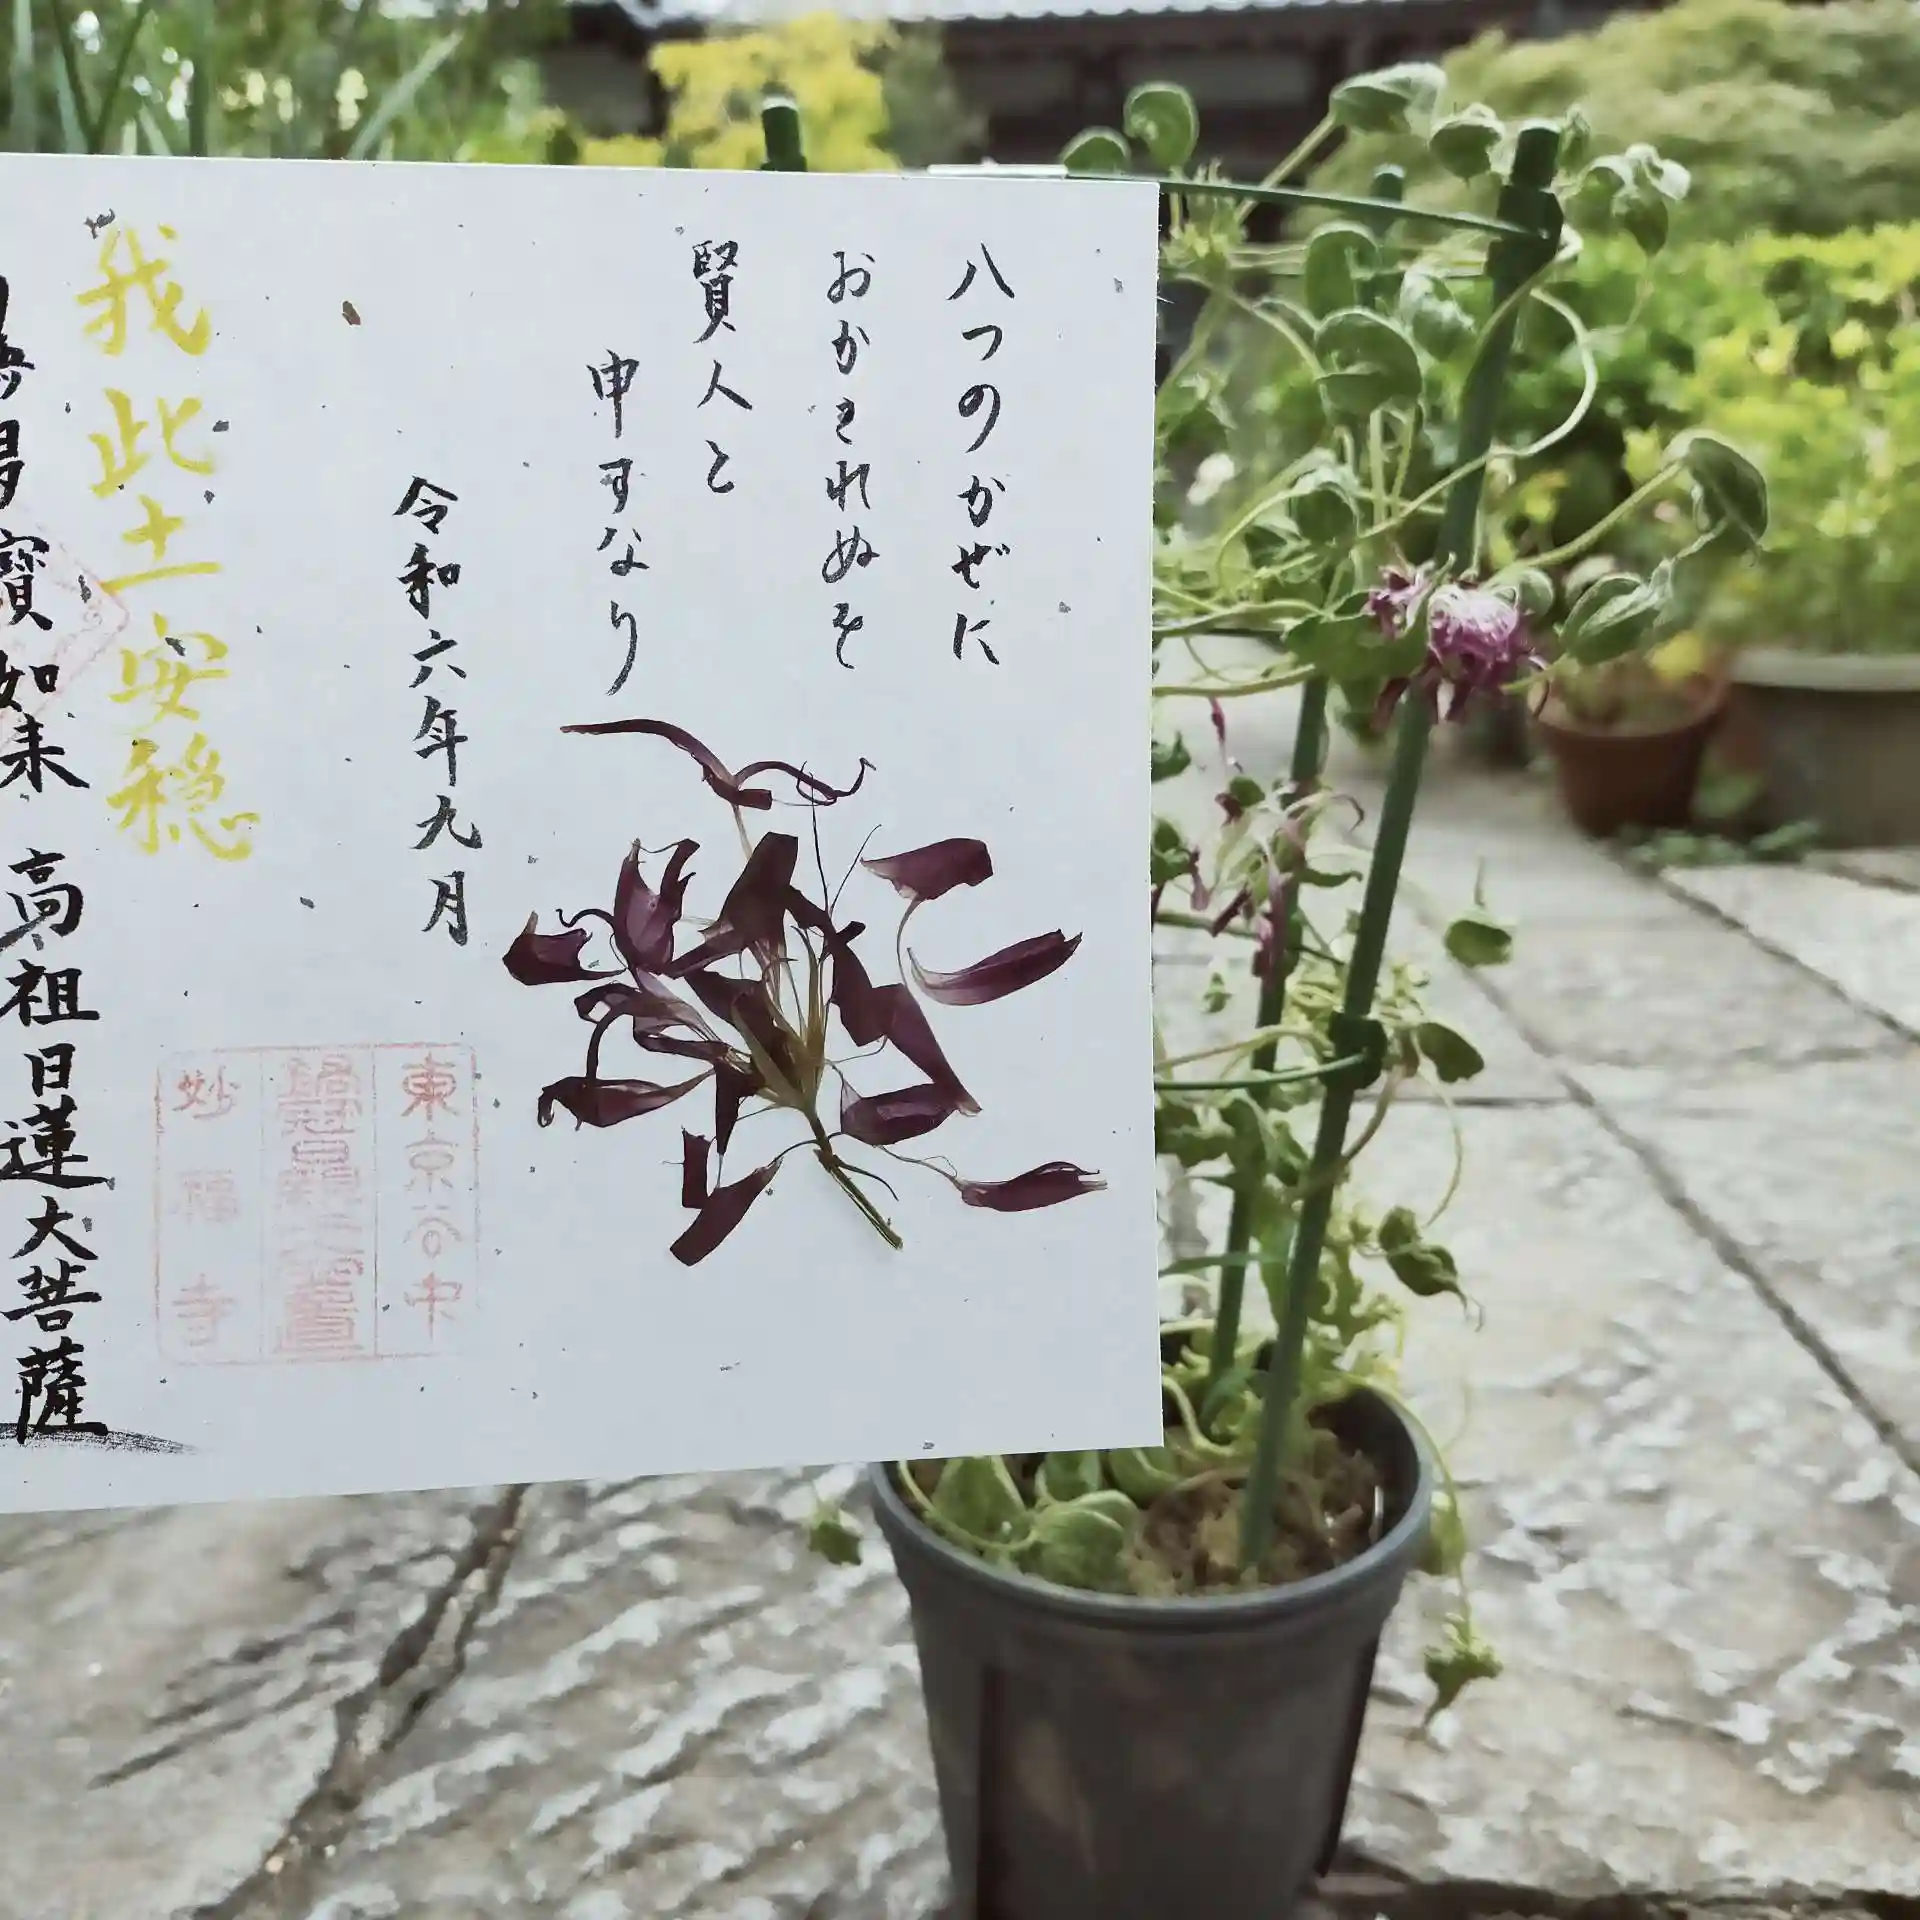 八つのかぜに
おかされぬを
賢人と
申すなり
令和六年九月
東京谷中
妙福寺
我此土安穏
多寶如来 高祖日蓮大菩薩